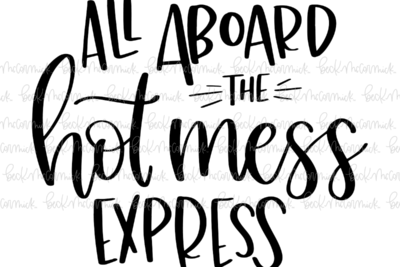 ALL ABOARD
THE
hot mess
EXPRESS